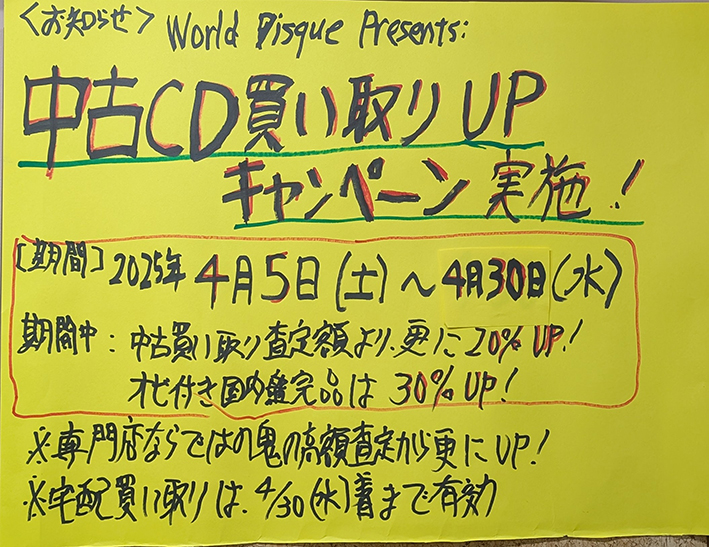 〈お知らせ〉 World Disque Presents:
中古CD買い取りUP
キャンペーン 実施!
[期間] 2025年 4月5日(土)~4月30日(水)
期間中:中古買い取り査定額より、更に20% UP!
オビ付き国内盤完品は 30% UP!
※専門店ならではの鬼の高額査定から更にUP!
※宅配買い取りは、4/30(水)着まで有効